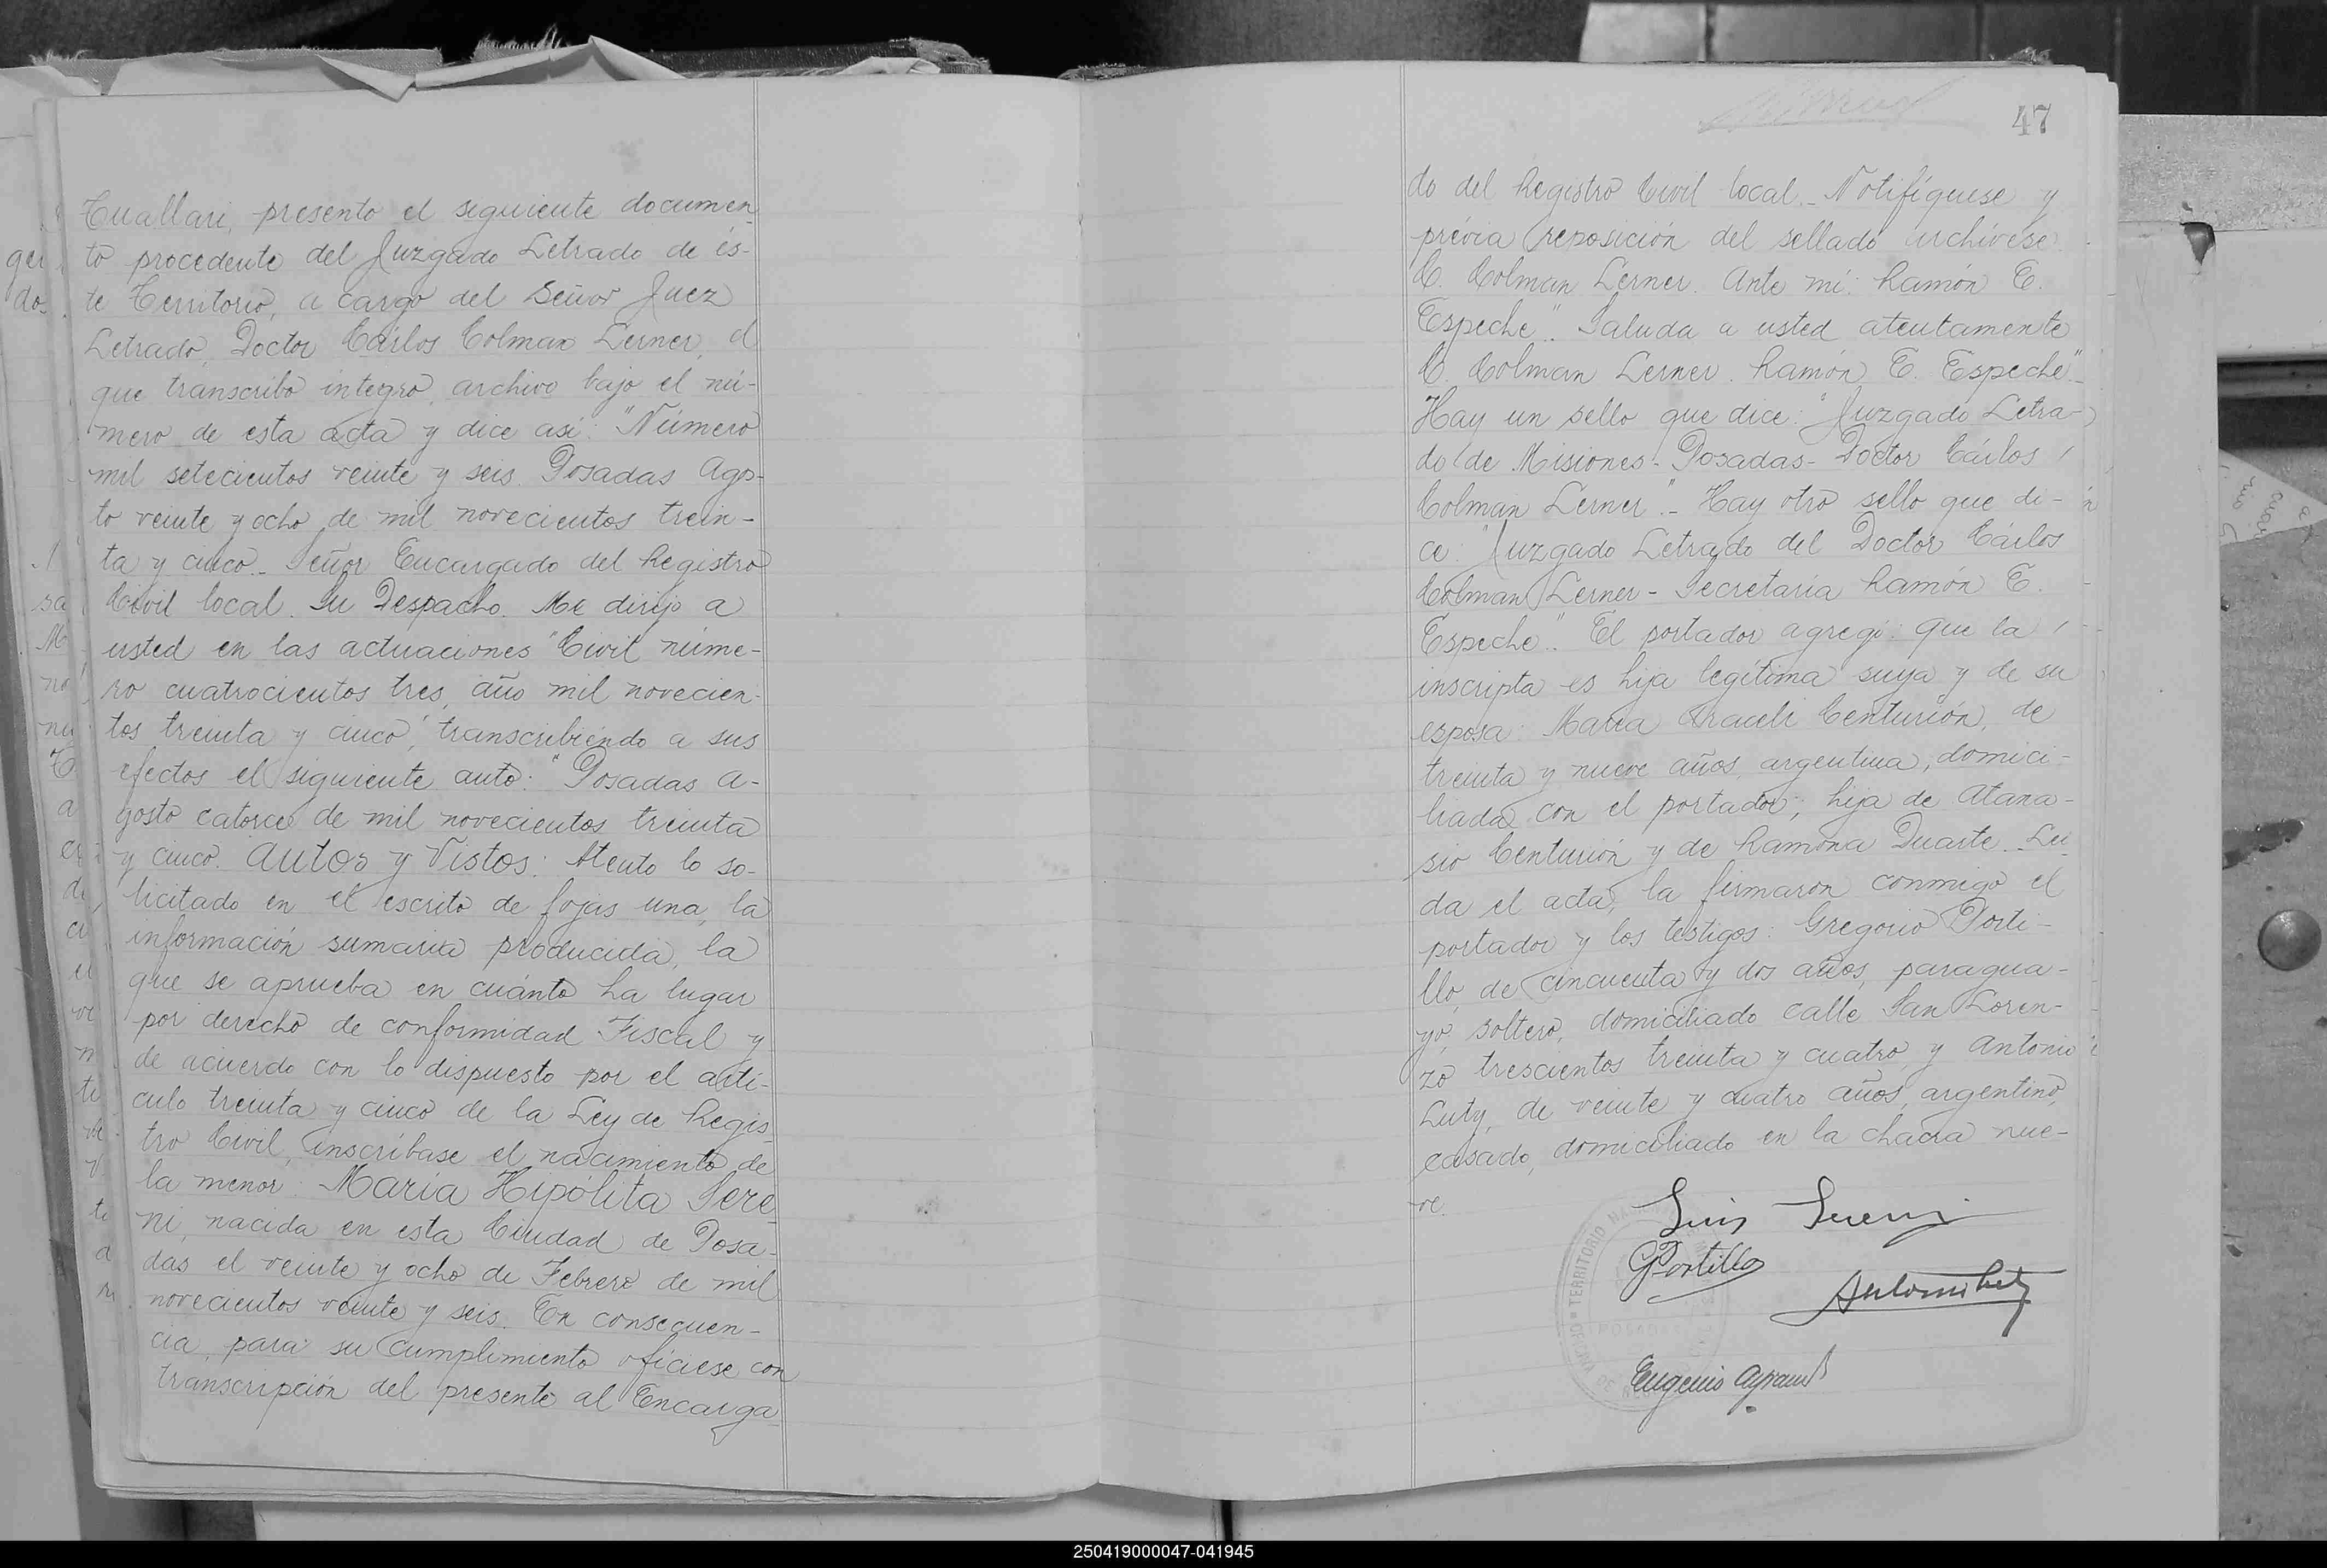 Cuallari, presento el siguiente documen
to procedente del Juzgado Letrado de és-
te Territorio, a cargo del Señor Juez
Letrado, Doctor Cárlos Colman Lerner, el
que transcribo integro, archivo bajo el nú-
mero de esta acta y dice asi: "Número
mil setecientos veinte y seis. Posadas Agos-
to veinte y ocho de mil novecientos trein-
ta y cinco._ Señor Encargado del Registro
Civil local. Su Despacho. Me dirijo a
usted en las actuaciones "Civil núme-
ro cuatrocientos tres, año mil novecien-
tos treinta y cinco", transcribiendo a sus
efectos el siguiente auto: "Posadas A-
gosto catorce de mil novecientos treinta
y cinco. Autos y Vistos: Atento lo so-
licitado en el escrito de fojas una, la
información sumaria producida, la
que se aprueba en cuánto ha lugar
por derecho de conformidad Fiscal y
de acuerdo con lo dispuesto por el artí-
culo treinta y cinco de la Ley de Regis
tro Civil, inscríbase el nacimiento de
la menor: María Hipólita Sere
ni, nacida en esta Ciudad de Posa-
das el veinte y ocho de Febrero de mil
novecientos veinte y seis. En consecuen-
cia, para su cumplimiento ofíciese con
transcripción del presente al Encarga
47
do del Registro Civil local._ Notifíquese y
prévia reposición del sellado archívese
C. Colman Lerner. Ante mí: Ramón E.
Espeche". Saluda a usted atentamente
C. Colman Lerner. Ramón E. Espeche"_
Hay un sello que dice: "Juzgado Letra-
do de Misiones- Posadas- Doctor Cárlos
Colman Lerner"._ Hay otro sello que di-
ce: "Juzgado Letrado del Doctor Cárlos
Colman Lerner - Secretaría Ramón E.
Espeche". El portador agregó: que la
inscripta es hija legítima suya y de su
esposa: María Araceli Centurión, de
treinta y nueve años, argentina, domici-
liada con el portador; hija de Atana-
sio Centurión y de Ramona Duarte._ Leí
da el acta, la firmaron conmigo el
portador y los testigos: Gregorio Porti-
llo, de cincuenta y dos años, paragua-
yo, soltero, domiciliado calle San Loren-
zo trescientos treinta y cuatro, y Antonio
Luty, de veinte y cuatro años, argentino,
casado, domiciliado en la chacra nue-
ve.
Luis Sereni
GPortillo
TERRITORIO
POSADAS
250419000047-041945